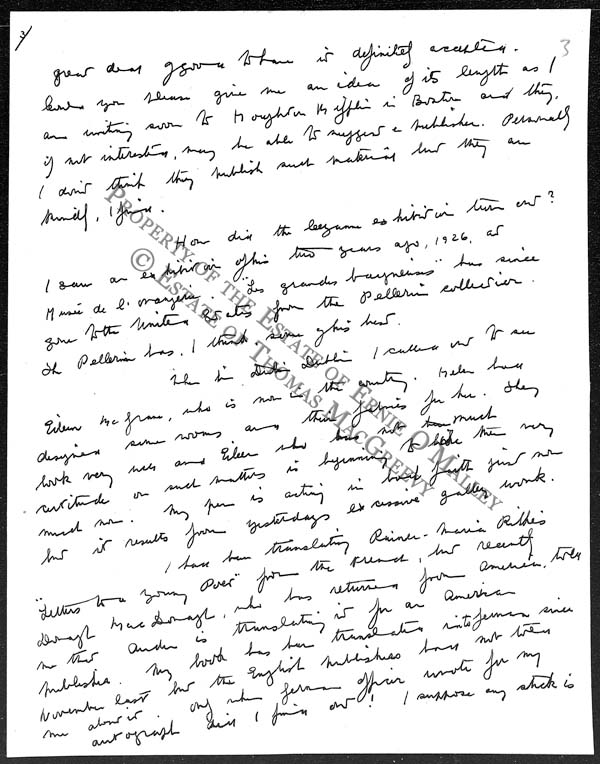 2/
3
great deal given to have it definitely accepted.
Could you please give me an idea of its length as I
am writing soon to Houghton Mifflin in Boston and they,
if not interested, may be able to suggest a publisher. Personally
I don't think they publish such material but they are
kindly, I find.
How did the Cezanne exhibition turn out?
I saw an exhibition of his two years ago, 1926, at
Musée de l'orangerie. "Les grandes baigneuses" has since
gone to the United States from the Pellerin collection.
The Pellerin has, I think some of his best.
When in Dublin I called out to see
Eileen McGrane, who is now in the country. Helen had
designed some rooms and their fabrics for her. They
look very well and Eileen who has not too much
certitude on such matters is beginning to like them very
much now. My pen is acting in bad faith just now
but it results from yesterdays excessive galley work.
I have been translating Rainer-Maria Rilke's
"Letters to a young Poet" from the French, but recently
Donagh MacDonagh, who has returned from America, tells
me that Auden is translating it for an American
publisher. My book has been translated into German since
November last but the English publishers have not told
me about it. Only when German officer wrote for my
autograph did I find out! I suppose any stick is
PROPERTY OF THE ESTATE OF ERNIE O'MALLEY
© ESTATE OF THOMAS MACGREEVY